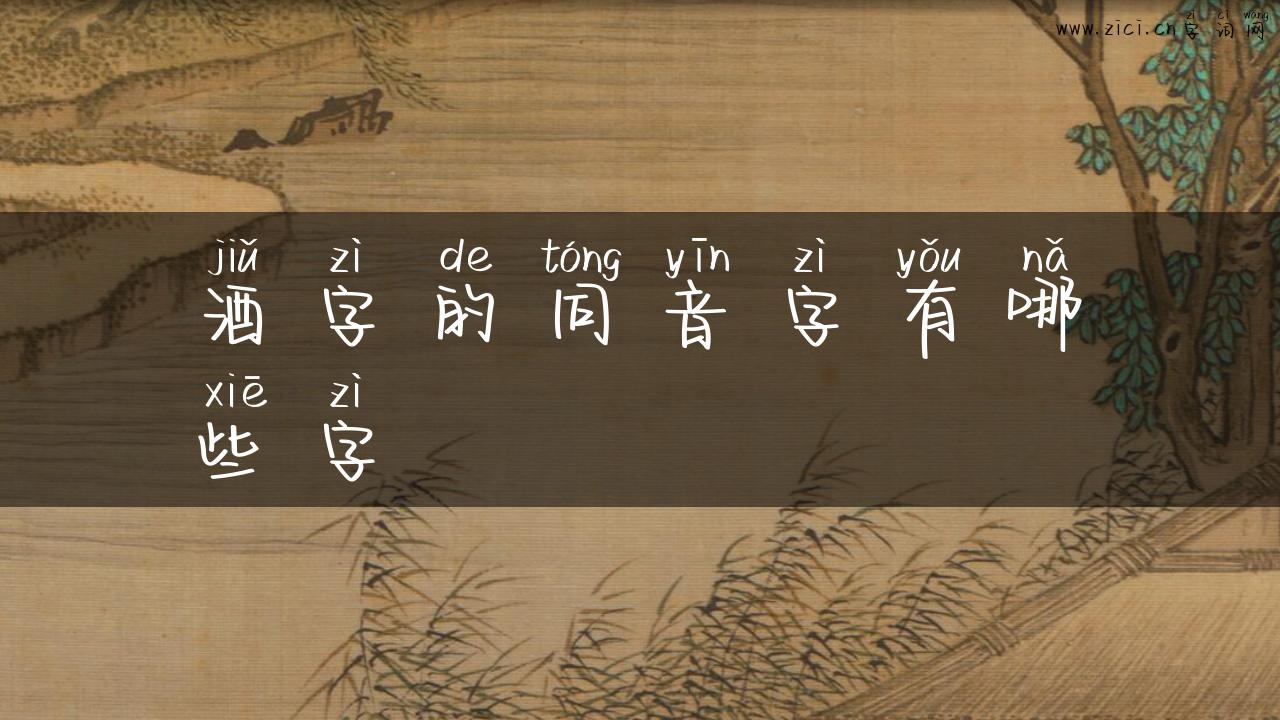 zì cí wǎng
www.zici.cn字词网
jiǔ zì de tóng yīn zì yǒu nǎ
酒字的同音字有哪
xiē zì
些字